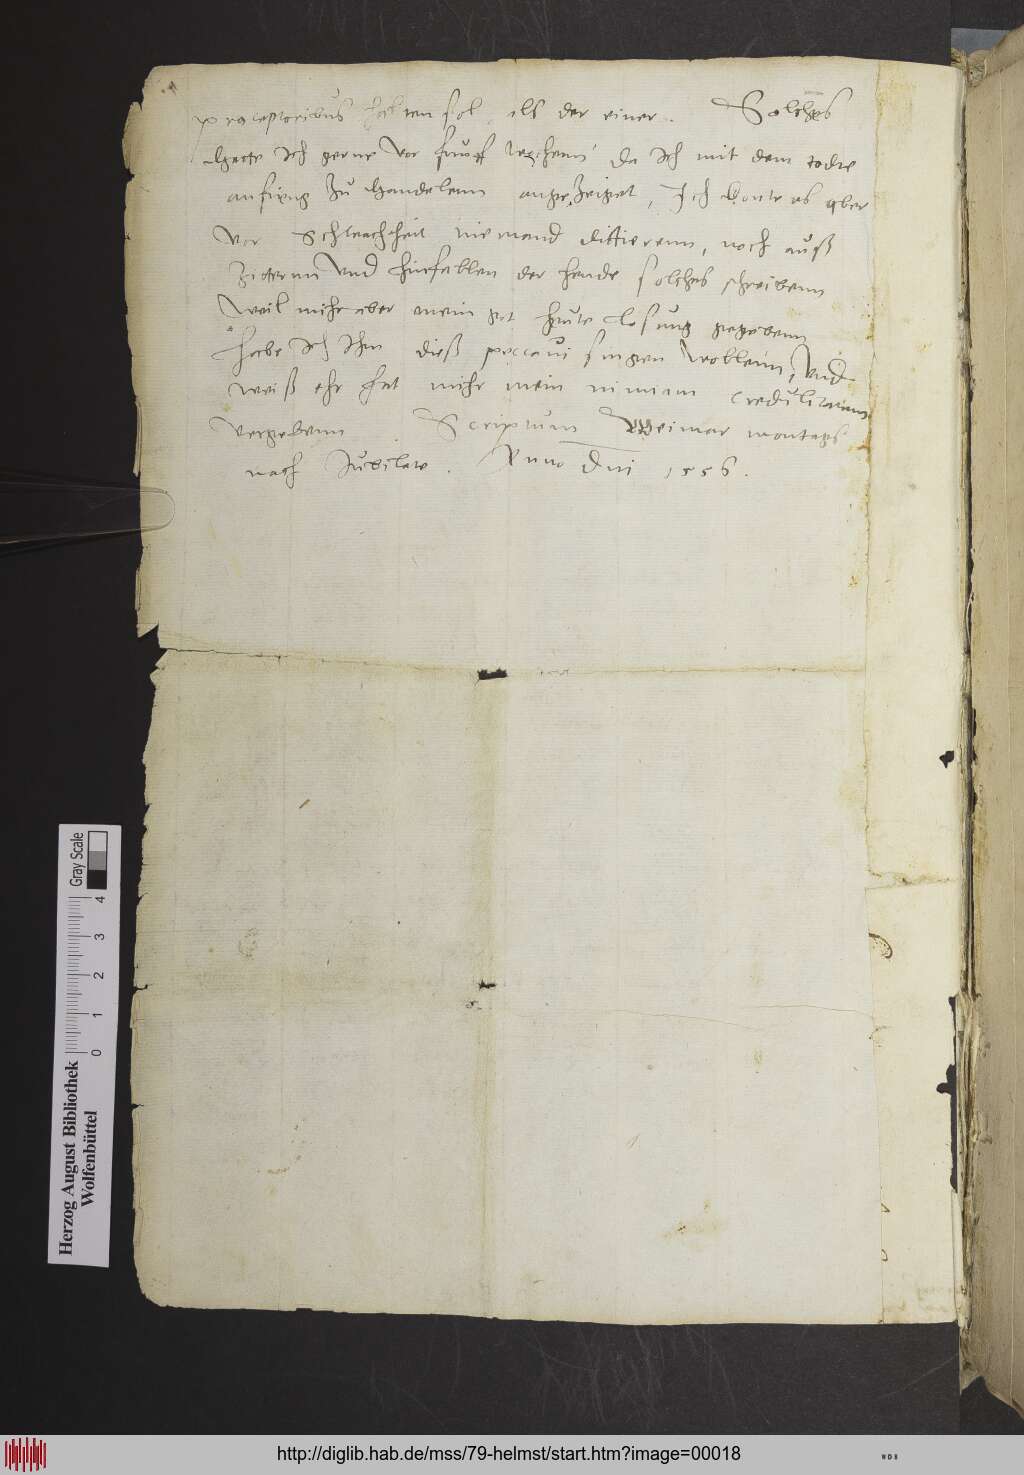 præceptoribus halten sol, als der einer. Solches
hette ich gerne vor funff wochenn da ich mit dem todte
anfieng zu handelenn angezeiget, Ich konte es aber
vor Schwachheit niemand dictierenn, noch auß
zitternn und hinfallen der hende solches schreibenn
Weil mihr aber mein got heute losung gegebenn
habe ich ihm dieß peccavi singen wollenn, und
weiß ehr hat mihr mein nimiam credulitatem
vergebenn Scriptum Weimar montags
nach Jubilate. Anno Dni 1556.
Herzog August Bibliothek
Wolfenbüttel
0 1 2 3 4
Gray Scale
http://diglib.hab.de/mss/79-helmst/start.htm?image=00018
WDB